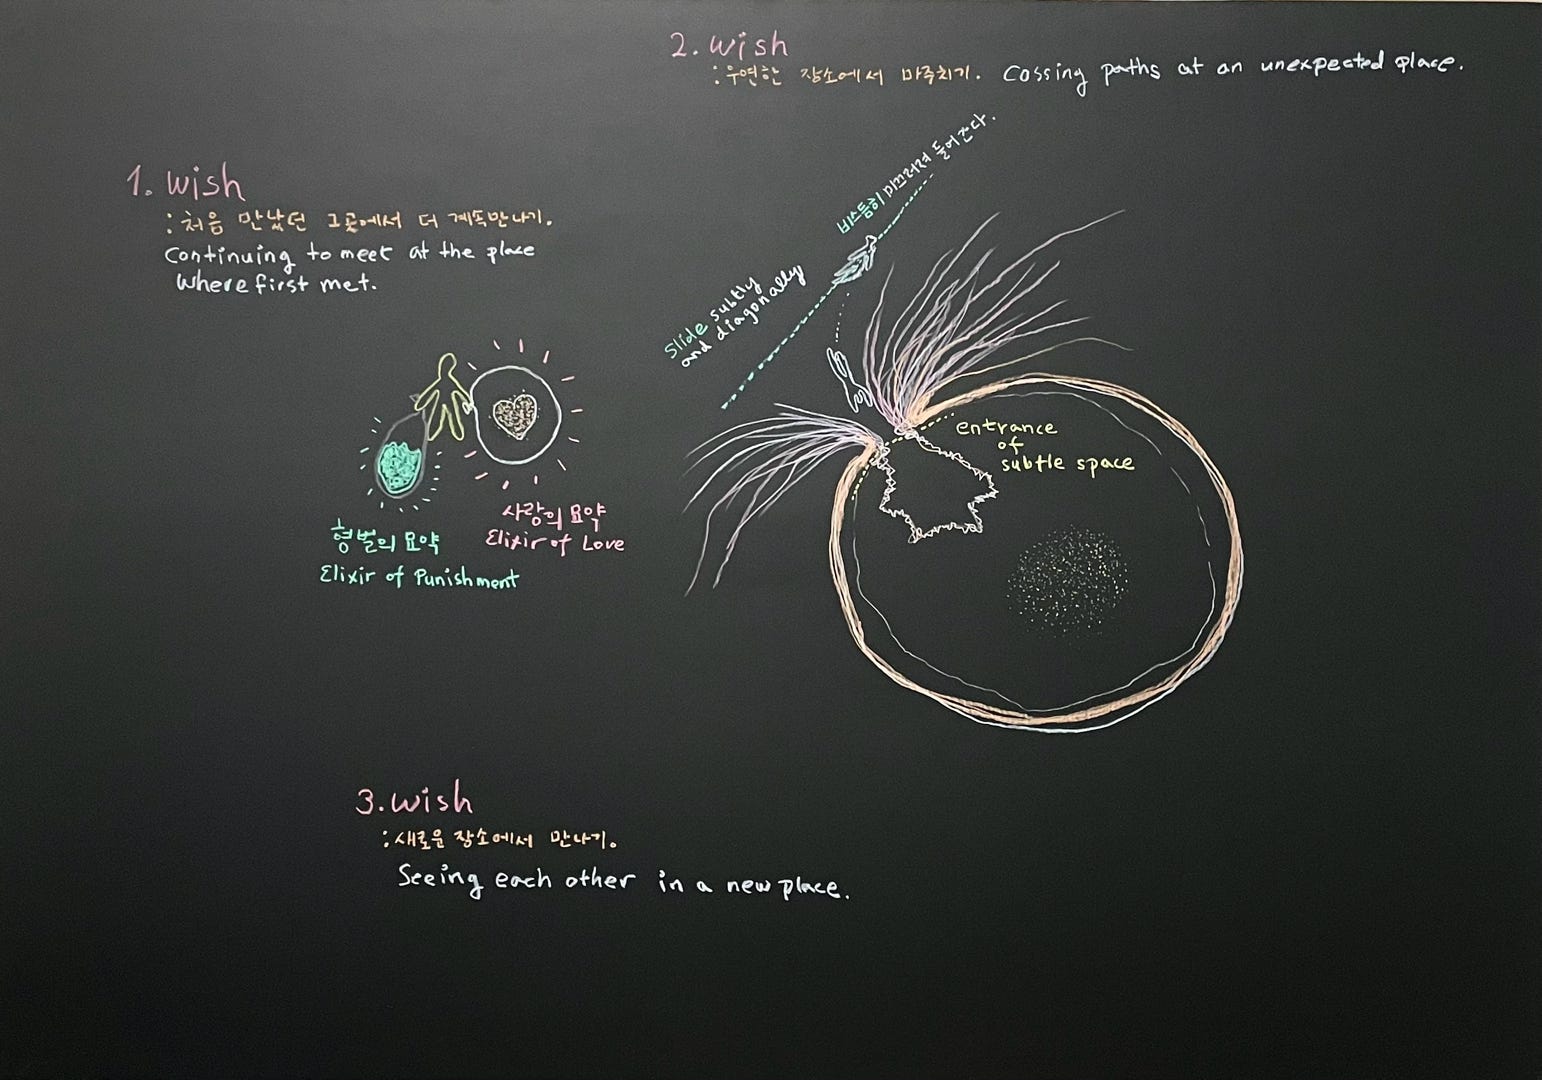 1. wish
: 처음 만났던 그곳에서 더 계속만나기.
Continuing to meet at the place
where first met.
형벌의 묘약
Elixir of Punishment
사랑의 묘약
Elixir of Love
2. wish
: 우연한 장소에서 마주치기. Cossing paths at an unexpected place.
비스듬히 미끄러져 들어간다.
Slide subtly
and diagonally
entrance
of
subtle space
3. wish
: 새로운 장소에서 만나기.
Seeing each other in a new place.